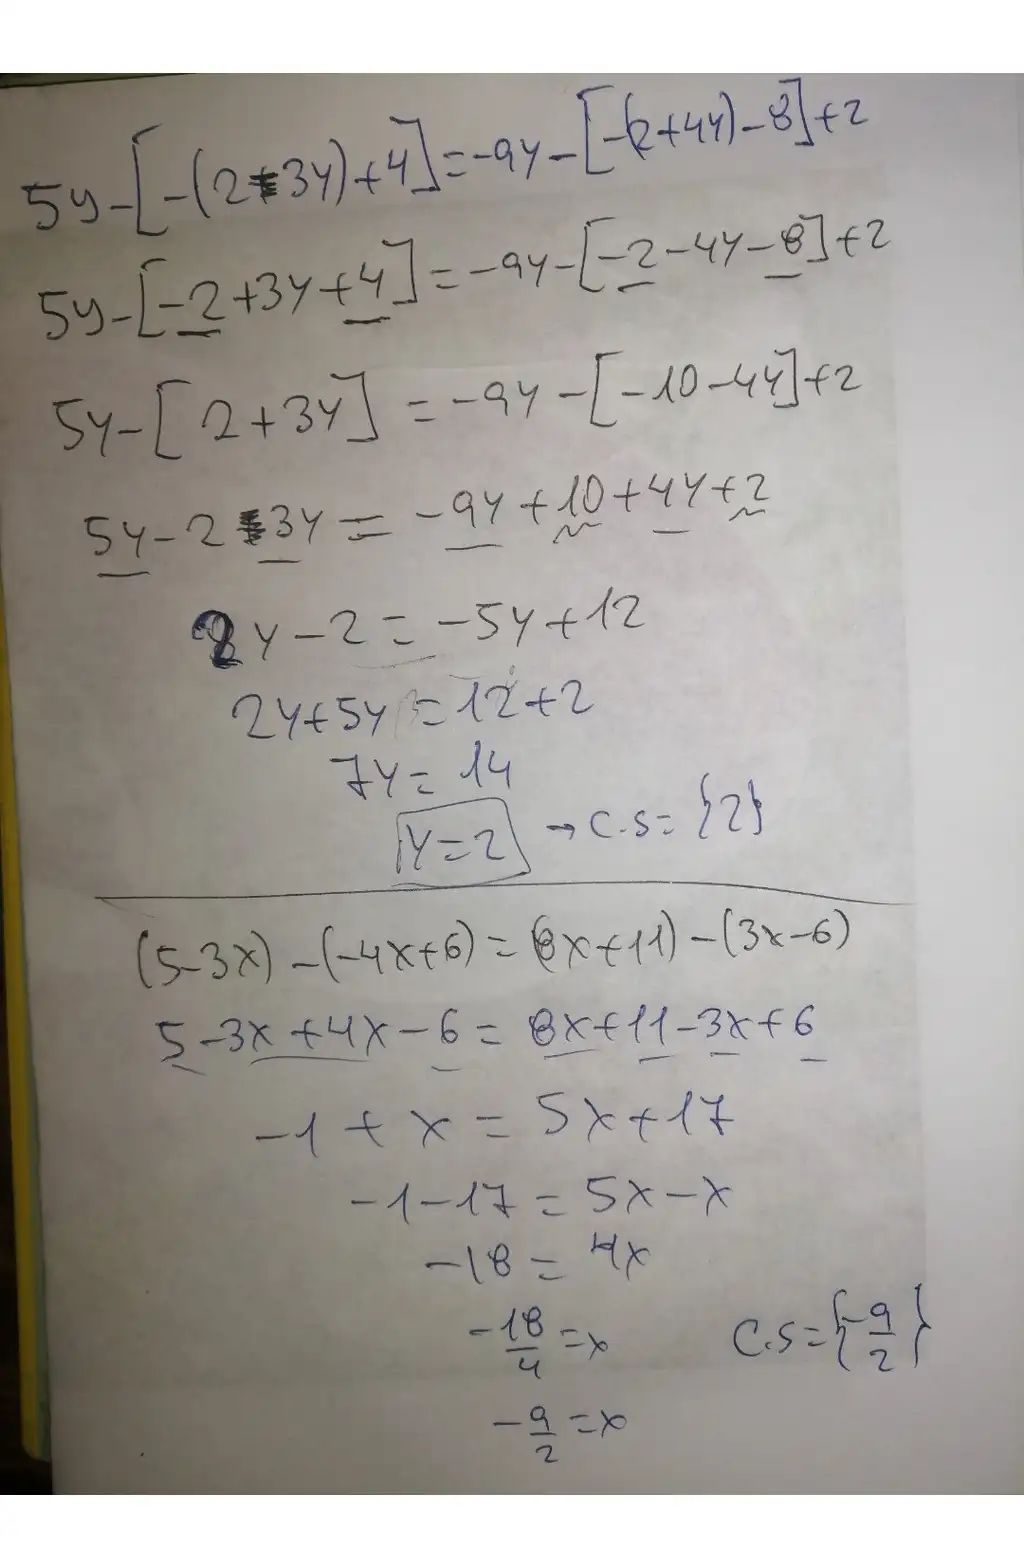 5y-[-(2-3y)+4]=-9y-[-(2+4y)-8]+2
5y-[-2+3y+4]=-9y-[-2-4y-8]+2
5y-[2+3y]=-9y-[-10-4y]+2
5y-2-3y=-9y+10+4y+2
2y-2=-5y+12
2y+5y=12+2
7y=14
y=2 → C.S={2}
(5-3x)-(-4x+6)=(8x+11)-(3x-6)
5-3x+4x-6=8x+11-3x+6
-1+x=5x+17
-1-17=5x-x
-18=4x
-18/4=x C.S={-9/2}
-9/2=x